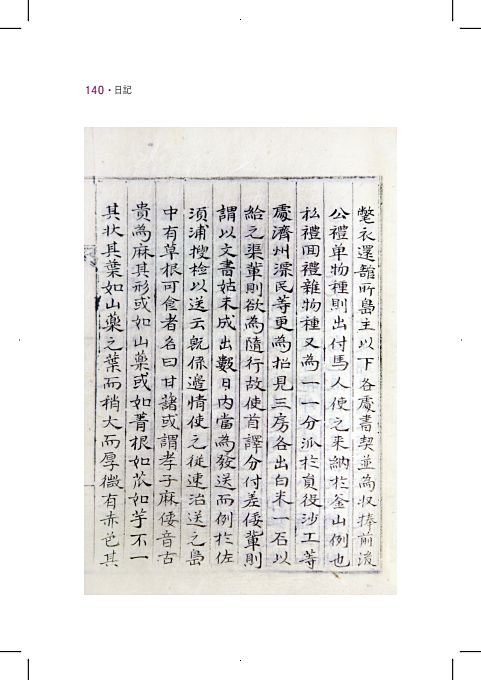 140 · 日記
氅衣還館所島主以下各處書契並爲収捧前後
公禮单物種則出付馬人使之来納於釜山例也
私禮回禮雜物種又為一一分派於負役沙工等
處濟州漂民等更為招見三房各出白米一石以
給之渠輩則欲為隨行故使首譯分付差倭輩則
謂以文書姑未成出數日內當為發送而例於佐
須浦搜检以送云旣係邊情使之從速治送之島
中有草根可食者名曰甘藷或謂孝子麻倭音古
貴為麻其形或如山藥或如菁根如苽如芋不一
其狀其葉如山藥之葉而稍大而厚微有赤色其